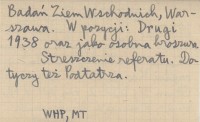 Badań Ziem Wschodnich, War-
szawa. W pozycji: Drugi
1938 oraz jako osobna broszura
Streszczenie referatu. Do-
tyczy też Podtatrza.
WHP, MT